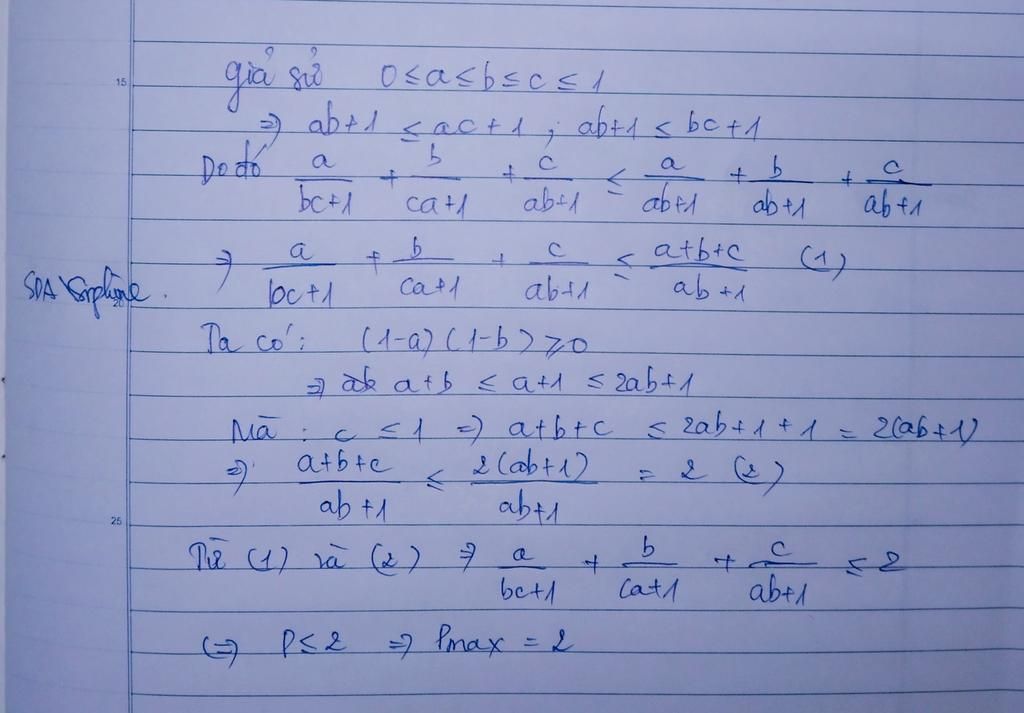 15
giả sử 0 ≤ a ≤ b ≤ c ≤ 1
⇒ ab+1 ≤ ac+1 ; ab+1 ≤ bc+1
Do đó a/(bc+1) + b/(ca+1) + c/(ab+1) ≤ a/(ab+1) + b/(ab+1) + c/(ab+1)
⇒ a/(bc+1) + b/(ca+1) + c/(ab+1) ≤ (a+b+c)/(ab+1) (1)
SDA
Ta có: (1-a)(1-b) ≥ 0
⇒ a+b ≤ a+1 ≤ 2ab+1
Mà : c ≤ 1 ⇒ a+b+c ≤ 2ab+1+1 = 2(ab+1)
⇒ (a+b+c)/(ab+1) ≤ 2(ab+1)/(ab+1) = 2 (2)
25
Từ (1) và (2) ⇒ a/(bc+1) + b/(ca+1) + c/(ab+1) ≤ 2
(⇒) P ≤ 2 ⇒ Pmax = 2